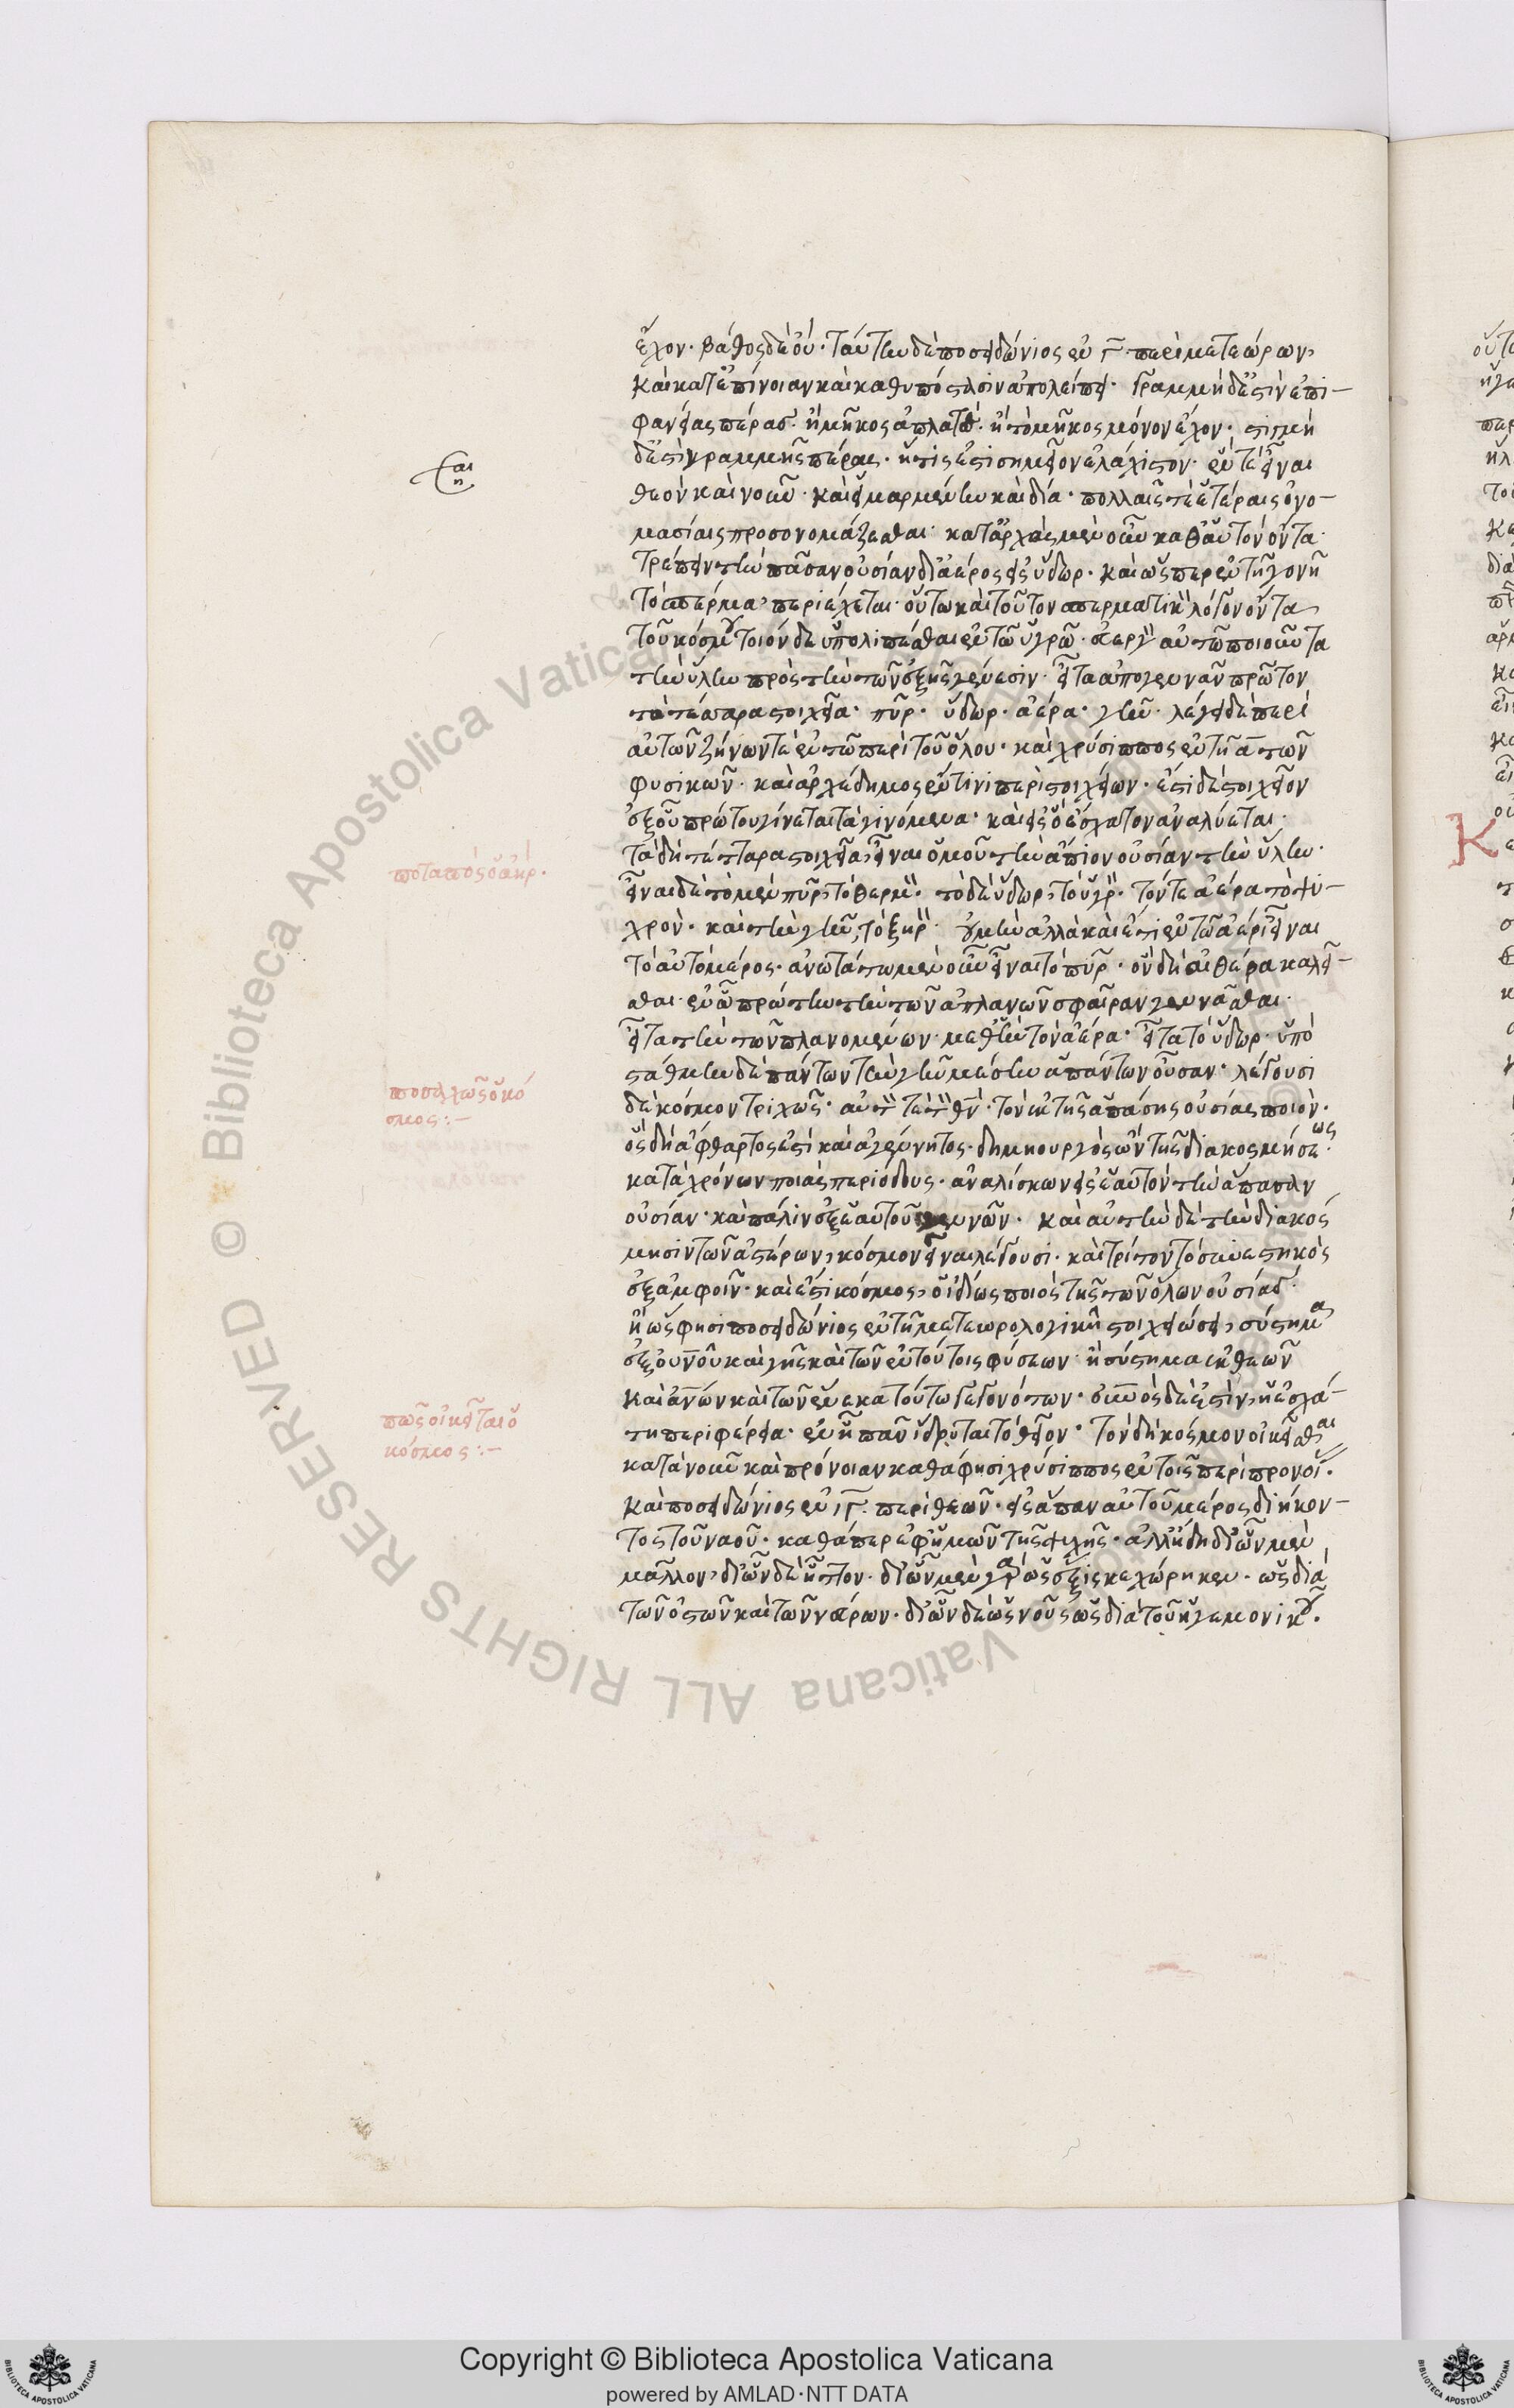 ἔχον· βάθος δὲ οὔ· ταύτην δὲ ποσειδώνιος ἐν γ περὶ μετεώρων,
καὶ κατ' ἐπίνοιαν καὶ καθ' ὑπόστασιν ἀπολείπει· γραμμὴ δέ ἐστιν ἐπι-
φανείας πέρας· ἢ μῆκος ἀπλατές· ἢ τὸ μῆκος μόνον ἔχον· στιγμὴ
δέ ἐστι γραμμῆς πέρας· ἥτις ἐστὶ σημεῖον ἐλάχιστον· ἕν τε εἶναι
θεὸν καὶ νοῦν· καὶ εἱμαρμένην καὶ δία· πολλαῖς τε ἑτέραις ὀνο-
μασίαις προσονομάζεσθαι· κατ' ἀρχὰς μὲν οὖν καθ' αὑτὸν ὄντα·
τρέπειν τὴν πᾶσαν οὐσίαν δι' ἀέρος εἰς ὕδωρ· καὶ ὥσπερ ἐν τῇ γονῇ
τὸ σπέρμα περιέχεται· οὕτω καὶ τοῦτον σπερματικ λόγον ὄντα
τοῦ κόσμου τοιόνδε ὑπολιπέσθαι ἐν τῷ ὑγρῷ· εὐεργ αὐτῷ ποιοῦντα
τὴν ὕλην πρὸς τὴν τῶν ἑξῆς γένεσιν· εἶτα ἀπογεννᾶν πρῶτον
τὰ τέσσαρα στοιχεῖα· πῦρ· ὕδωρ· ἀέρα· γῆν· λέγει δὲ περὶ
αὐτῶν ζήνων τε ἐν τῷ περὶ τοῦ ὅλου· καὶ χρύσιππος ἐν τῇ α τῶν
φυσικῶν· καὶ ἀρχέδημος ἔν τινι περὶ στοιχείων· ἔστι δὲ στοιχεῖον
ἐξ οὗ πρώτου γίνεται τὰ γινόμενα· καὶ εἰς ὃ ἔσχατον ἀναλύεται·
τὰ δὴ τέτταρα στοιχεῖα εἶναι ὁμοῦ τὴν ἄποιον οὐσίαν τὴν ὕλην·
εἶναι δὲ τὸ μὲν πῦρ, τὸ θερμ· τὸ δὲ ὕδωρ, τὸ ὑγρ· τόν τε ἀέρα τὸ ψυ-
χρόν· καὶ τὴν γῆν, τὸ ξηρ· οὐ μὴν ἀλλὰ καὶ ἔτι ἐν τῷ ἀέρι εἶναι
τὸ αὐτὸ μέρος· ἀνωτάτω μὲν οὖν εἶναι τὸ πῦρ· ὃν δὴ αἰθέρα καλεῖ-
σθαι· ἐν ᾧ πρώτην τὴν τῶν ἀπλανῶν σφαῖραν γεννᾶσθαι·
εἶτα τὴν τῶν πλανομένων· μεθ' ἣν τὸν ἀέρα· εἶτα τὸ ὕδωρ· ὑπο
στάθμην δὲ πάντων τὴν γῆν μέσην ἁπάντων οὖσαν· λέγουσι
δὲ κόσμον τριχῶς· αὐτ τε τ θν· τὸν ἐκ τῆς ἁπάσης οὐσίας ποιόν·
ὃς δὴ ἄφθαρτός ἐστι καὶ ἀγέννητος· δημιουργὸς ὢν τῆς διακοσμήσεως
κατὰ χρόνων ποιὰς περιόδους· ἀναλίσκων εἰς ἑαυτὸν τὴν ἅπασαν
οὐσίαν· καὶ πάλιν ἐξ ἑαυτοῦ γεννῶν· καὶ αὐτὴν δὲ τὴν διακόσ
μησιν τῶν ἀστέρων, κόσμον εἶναι λέγουσι· καὶ τρίτον τὸ συνεστηκὸς
ἐξ ἀμφοῖν· καὶ ἔστι κόσμος, ὁ ἰδίως ποιὸς τῆς τῶν ὅλων οὐσίας·
ἢ ὥς φησι ποσειδώνιος ἐν τῇ μετεωρολογικῇ στοιχειώσει, σύστημα
ἐξ οὐνοῦ καὶ γῆς καὶ τῶν ἐν τούτοις φύσεων· ἢ σύστημα ἐκ θεῶν
καὶ ἀνῶν καὶ τῶν ἕνεκα τούτω γεγονότων· οὐνὸς δέ ἐστιν, ἡ ἐσχά-
τη περιφέρεια· ἐν ᾗ πᾶν ἵδρυται τὸ θεῖον· τὸν δὴ κόσμον οἰκεῖσθαι
κατὰ νοῦν καὶ πρόνοιαν καθά φησι χρύσιππος ἐν τοῖς περὶ προνοί·
καὶ ποσειδώνιος ἐν ιγ περὶ θεῶν· εἰς ἅπαν αὐτοῦ μέρος διήκον-
τος τοῦ ναοῦ· καθάπερ ἐφ' ἡμῶν τῆς ψυχῆς· ἀλλ' ἤδη δι' ὧν μὲν
μᾶλλον, δι' ὧν δὲ ἧττον· δι' ὧν μὲν γὰρ ὡς ἕξις κεχώρηκεν· ὡς διὰ
τῶν ὀστῶν καὶ τῶν νεύρων· δι' ὧν δὲ ὡς νοῦς ὡς διὰ τοῦ ἡγεμονικοῦ.
ποταπὸς ὁ ἀὴρ·
ποσαχῶς ὁ κό
σμος:–
πῶς οἰκεῖται ὁ
κόσμος:–
Copyright © Biblioteca Apostolica Vaticana
powered by AMLAD·NTT DATA
© Biblioteca Apostolica Vaticana ALL RIGHTS RESERVED